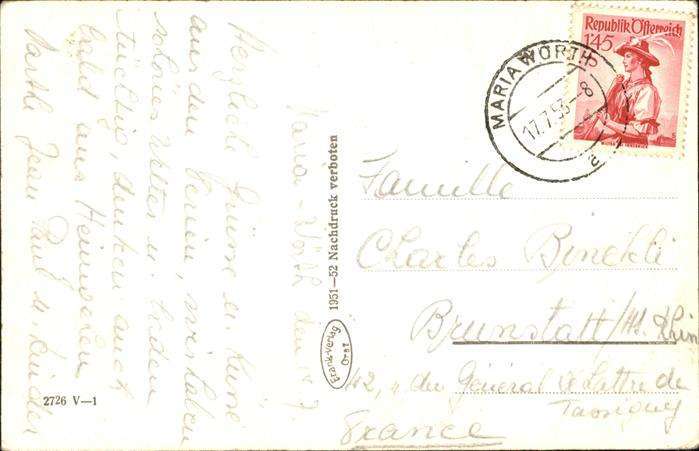 Maria-Wörth den 17. 7.
Herzliche Grüsse u. Küsse
aus den Ferien, wir haben
schönes Wetter u. baden
tüchtig, denken auch
aus Heimweh
Marthe Jean Paul u. Kinder
2726 V—1
1951—52 Nachdruck verboten
Frank-Verlag
Graz
Republik Österreich
1'45
MARIA WÖRTH
17.7.53-8
a
Famille
Charles
Brunstatt/Ht. Rhin
42, r. du Général de Lattre de
Tassigny
France